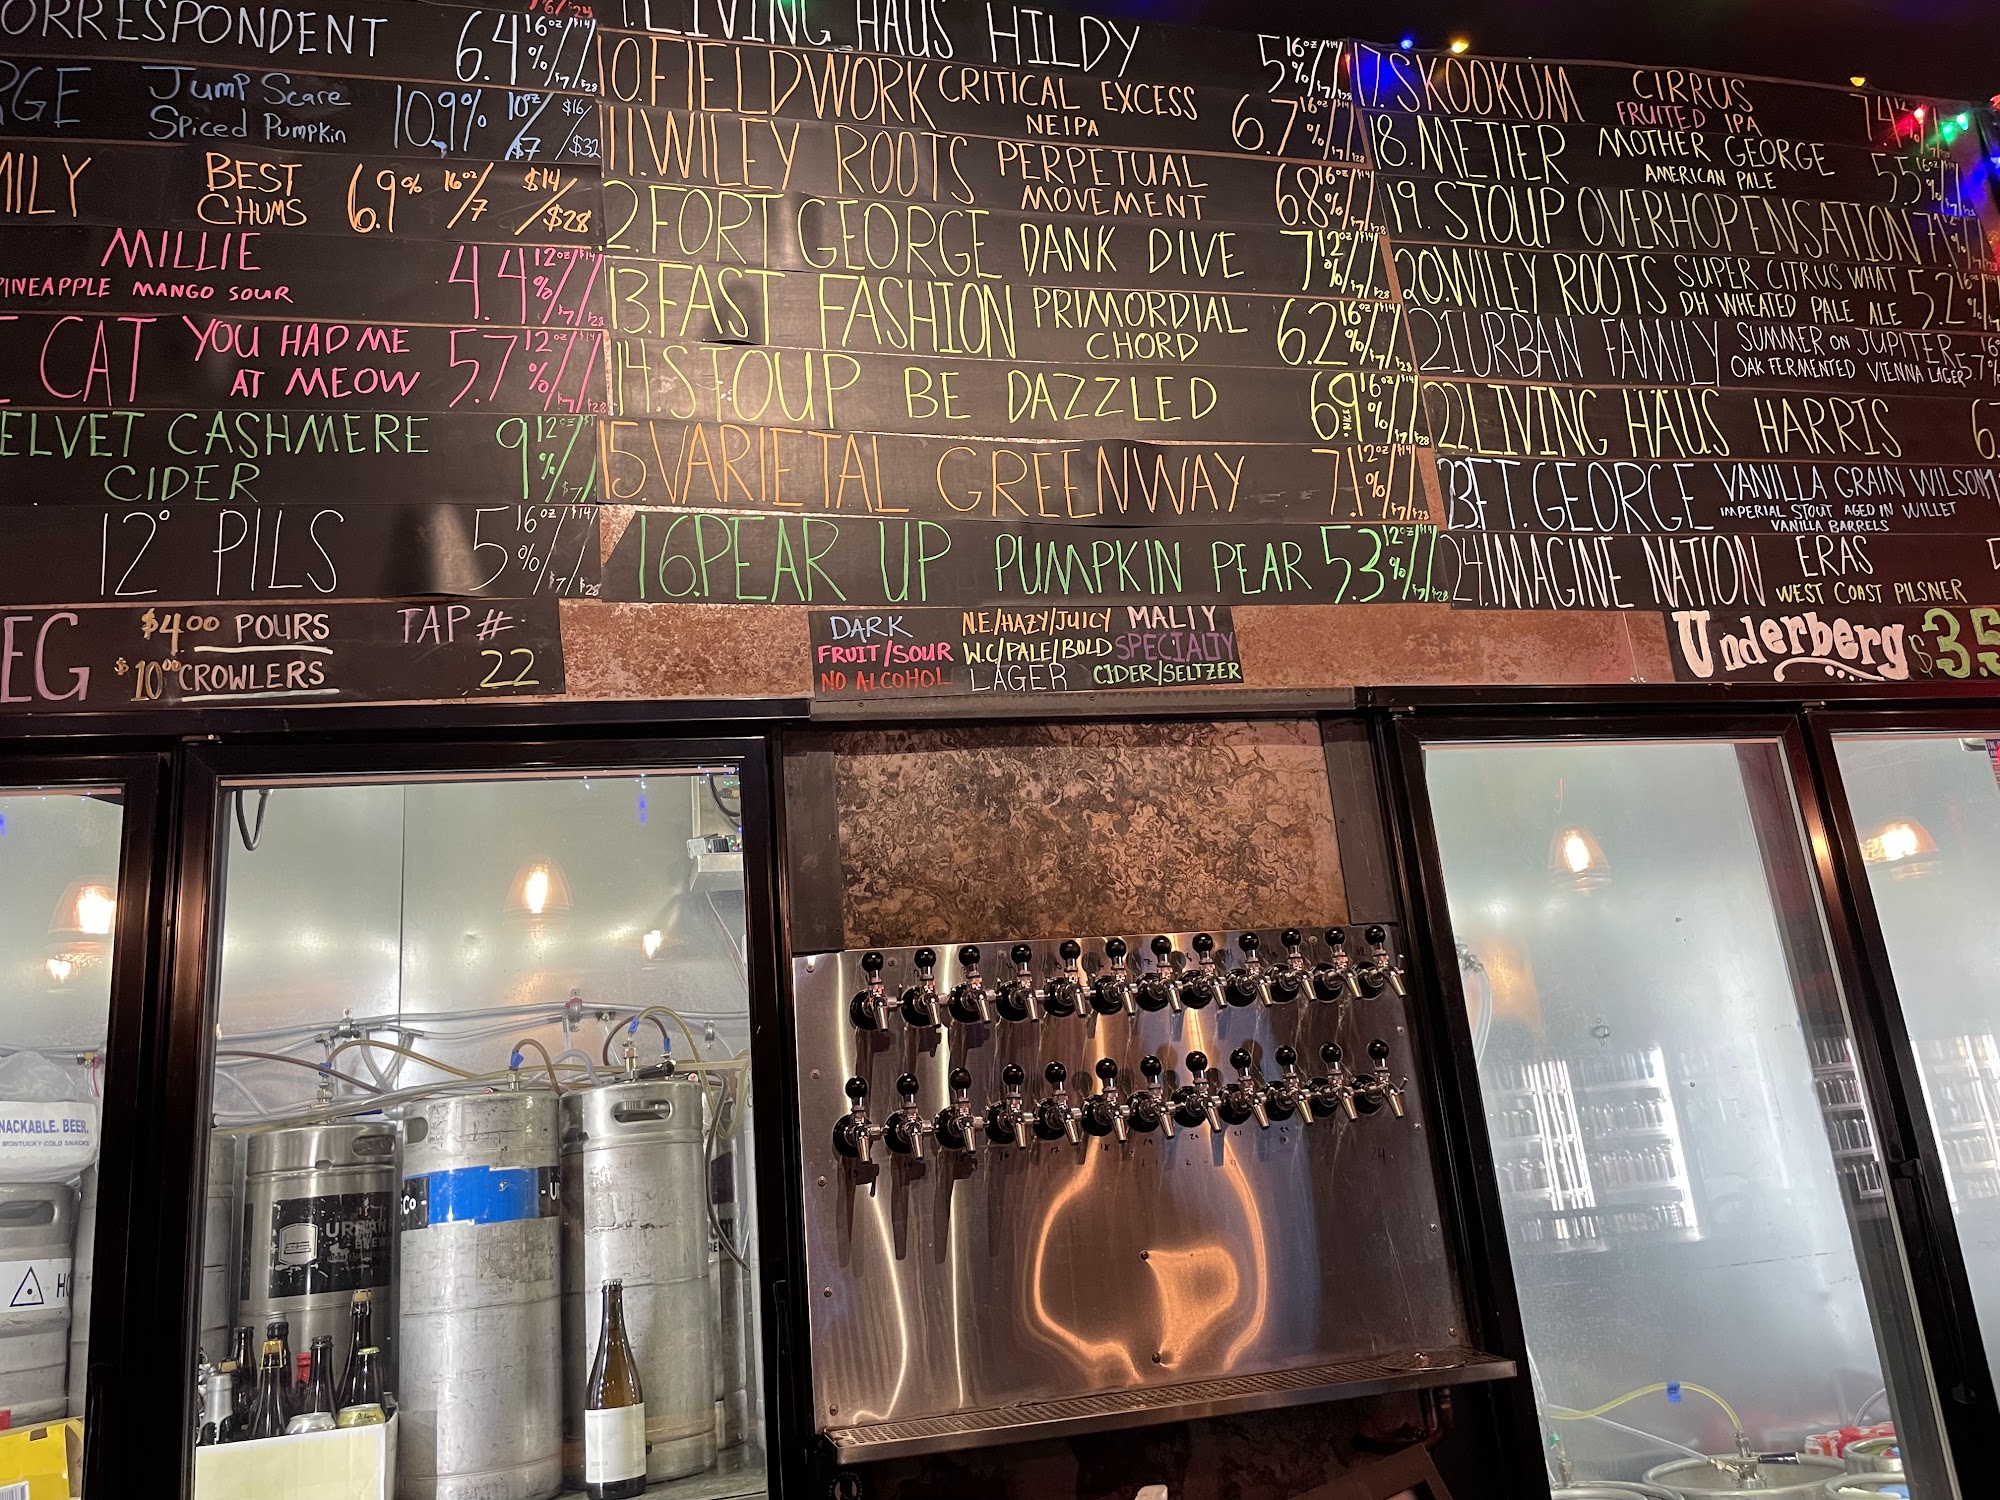 ORRESPONDENT 6.4% 16oz/$7/$14/$28
RGE Jump Scare 10.9% 10oz/$7 $16/$32
Spiced Pumpkin
MILY BEST CHUMS 6.9% 16oz/7 $14/$28
MILLIE 4.4% 12oz/$7/$14/$28
PINEAPPLE MANGO SOUR
CAT YOU HAD ME 5.7% 12oz/$7/$14/$28
AT MEOW
ELVET CASHMERE 9% 12oz/$7
CIDER
12° PILS 5% 16oz/$7/$14/$28
EG $4.00 POURS TAP #:
$10.00 CROWLERS 22
LIVING HAUS HILDY 5% 16oz/$7/$14/$28
10. FIELDWORK CRITICAL EXCESS 6.7% 16oz/$7/$14/$28
NEIPA
11. WILEY ROOTS PERPETUAL 6.8% 16oz/$7/$14/$28
MOVEMENT
2. FORT GEORGE DANK DIVE 7% 12oz/$7/$14/$28
13. FAST FASHION PRIMORDIAL 6.2% 16oz/$7/$14/$28
CHORD
14. STOUP BE DAZZLED 6.9% 16oz/$7/$14/$28
NICE
15. VARIETAL GREENWAY 7.1% 12oz/$7/$14/$28
16. PEAR UP PUMPKIN PEAR 5.3% 12oz/$7/$14/$28
DARK N.E/HAZY/JUICY MALTY
FRUIT/SOUR W.C/PALE/BOLD SPECIALTY
NO ALCOHOL LAGER CIDER/SELTZER
17. SKOOKUM CIRRUS 7.4
FRUITED IPA
18. METIER MOTHER GEORGE 5.5
AMERICAN PALE
19. STOUP OVERHOPENSATION 7
20. WILEY ROOTS SUPER CITRUS WHAT 5.2%
DH WHEATED PALE ALE
21 URBAN FAMILY SUMMER ON JUPITER 5.7%
OAK FERMENTED VIENNA LAGER
22. LIVING HAUS HARRIS
23. FT. GEORGE VANILLA GRAIN WILSON
IMPERIAL STOUT AGED IN WILLET
VANILLA BARRELS
24. IMAGINE NATION ERAS
WEST COAST PILSNER
Underberg $3.5
NACKABLE. BEER.
MONTUCKY COLD SNACKS
URBAN